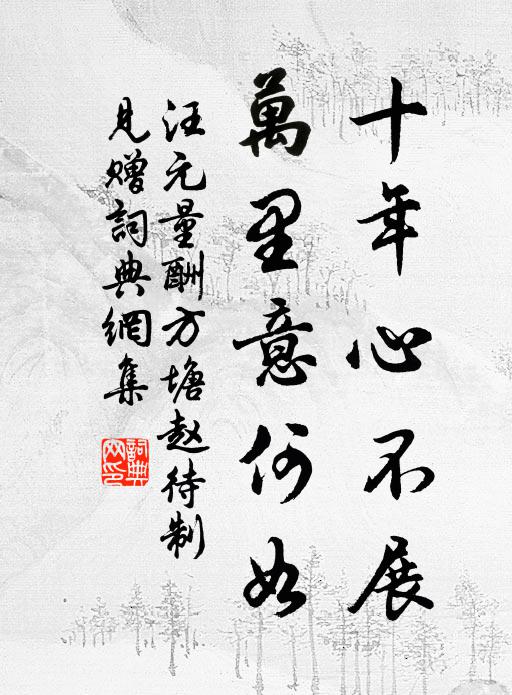 十年心不展
萬里意何如
汪元量酬方塘赵待制
見贈詞典網集
詞典
网印